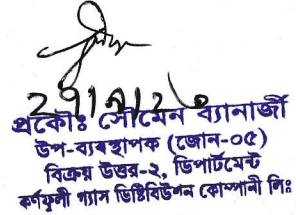 প্রকৌঃ সৌমেন ব্যানার্জী
উপ-ব্যবস্থাপক (জোন-০৫)
বিক্রয় উত্তর-২, ডিপার্টমেন্ট
কর্ণফুলী গ্যাস ডিষ্টিবিউশন কোম্পানী লিঃ